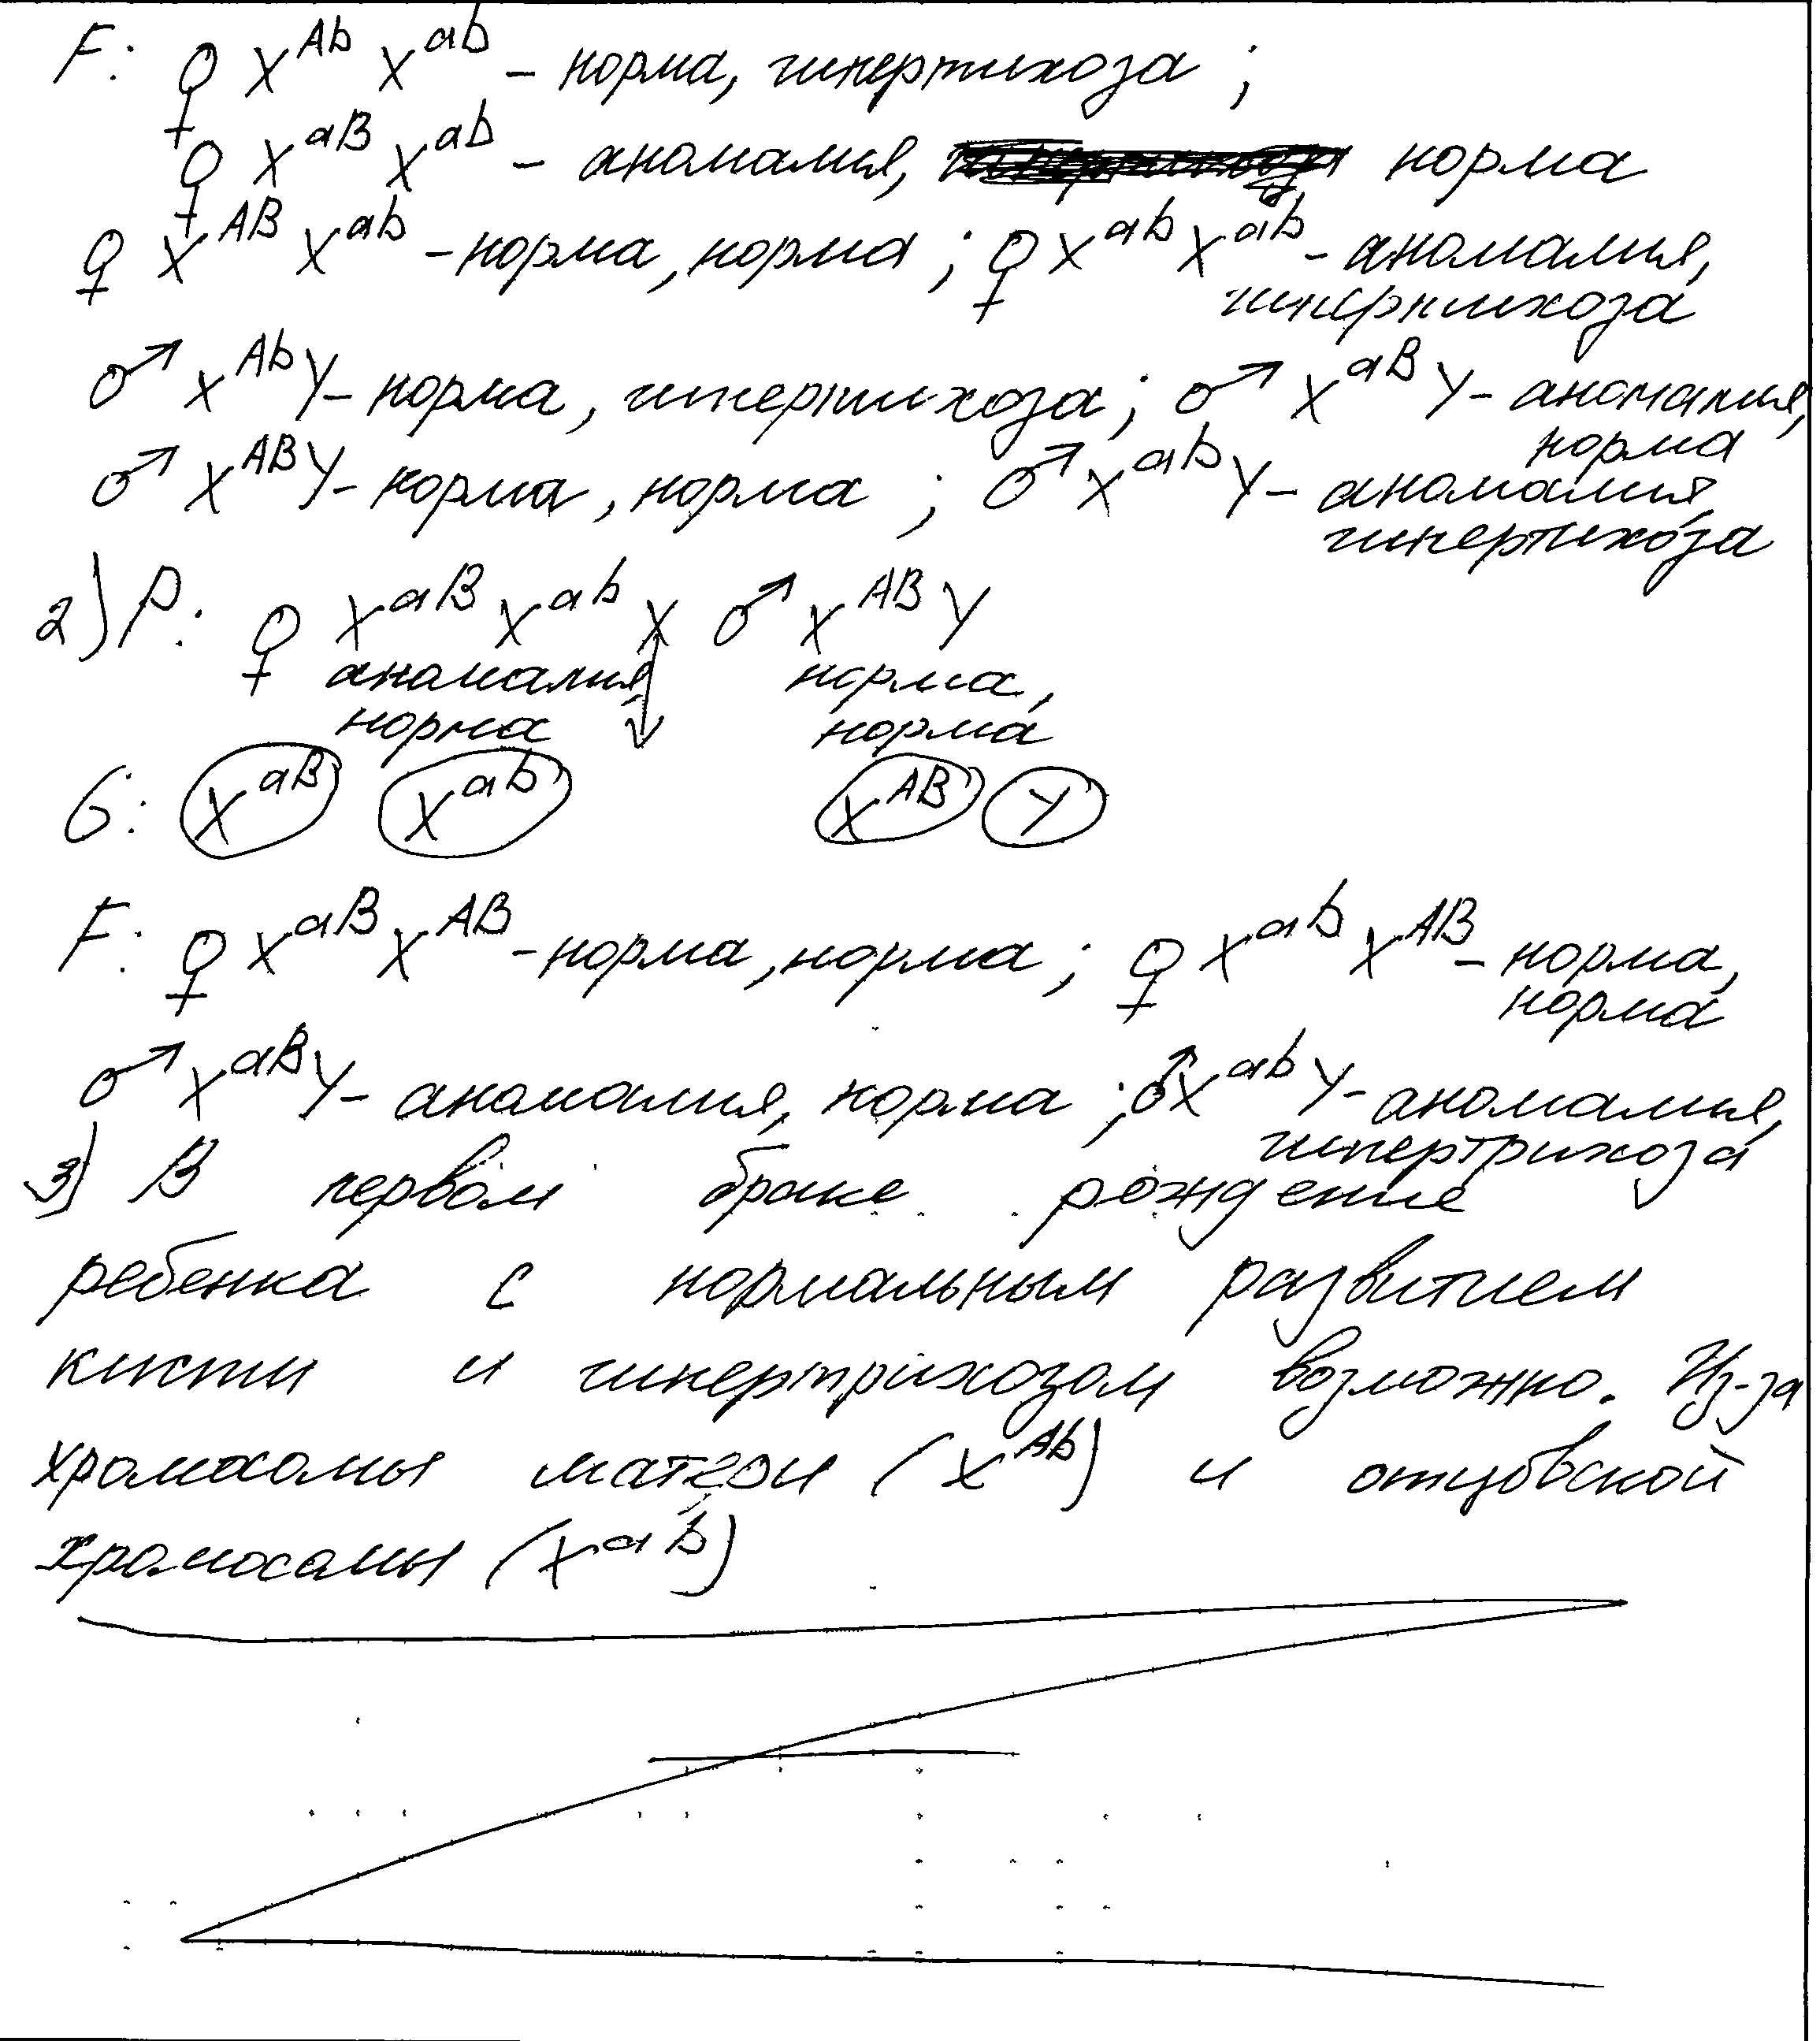 F: ♀ X^Ab X^ab – норма, гипертихоза ;
♀ X^aB X^ab – аномалия, норма
♀ X^AB X^ab – норма, норма ; ♀ X^ab X^ab – аномалия,
гипертихоза
♂ X^Ab Y – норма, гипертихоза ; ♂ X^aB Y – аномалия,
норма
♂ X^AB Y – норма, норма ; ♂ X^ab Y – аномалия,
гипертихоза
2) P: ♀ X^aB X^ab x ♂ X^AB Y
аномалия, норма,
норма норма
G: X^aB X^ab X^AB Y
F: ♀ X^aB X^AB – норма, норма ; ♀ X^ab X^AB – норма,
норма
♂ X^aB Y – аномалия, норма ; ♂ X^ab Y – аномалия,
гипертрихоза
3) В первом браке рождение
ребенка с нормальным развитием
кисти и гипертрихозом возможно. Из-за
хромосомы матери (X^Ab) и отцовской
хромосомы (X^ab)